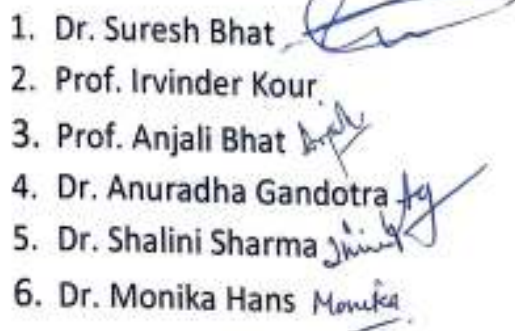 1. Dr. Suresh Bhat
2. Prof. Irvinder Kour
3. Prof. Anjali Bhat Anjali
4. Dr. Anuradha Gandotra Ag
5. Dr. Shalini Sharma Shalini
6. Dr. Monika Hans Monika